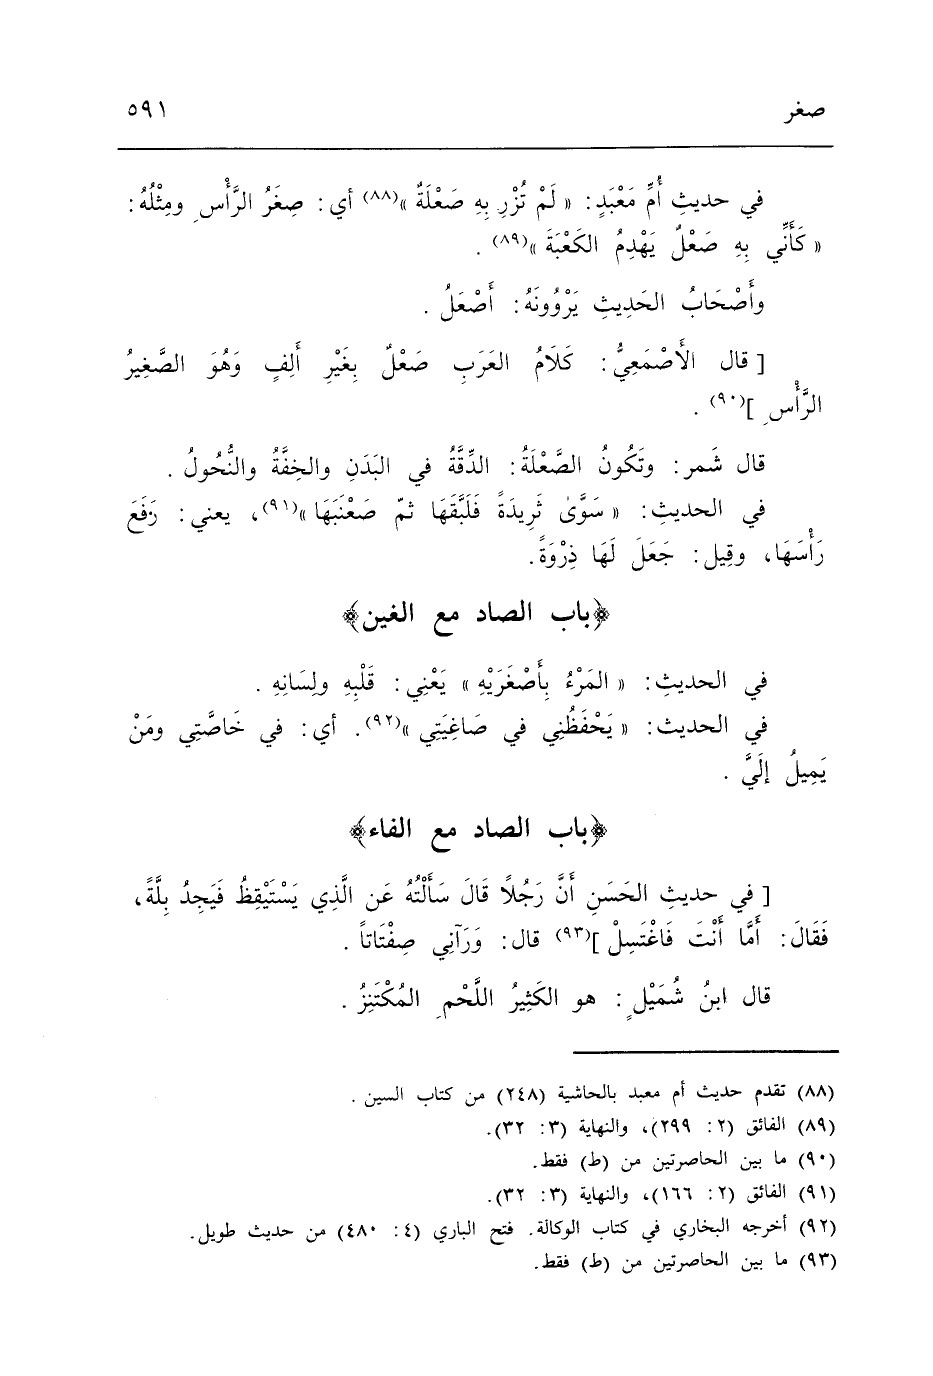 صغر ٥٩١
في حديثِ أُمِّ مَعْبَدٍ: « لَمْ تُزْرِ بِهِ صَعْلَةٌ »(٨٨) أي: صِغَرُ الرَّأْسِ ومِثْلُهُ:
« كَأَنِّي بِهِ صَعْلٌ يَهْدِمُ الكَعْبَةَ »(٨٩) .
وأَصْحَابُ الحَدِيثِ يَرْوُونَهُ: أَصْعَلُ .
[ قال الأَصْمَعِيُّ: كَلَامُ العَرَبِ صَعْلٌ بِغَيْرِ أَلِفٍ وَهُوَ الصَّغِيرُ
الرَّأْسِ ](٩٠) .
قال شَمر: وتَكُونُ الصَّعْلَةُ: الدِّقَّةُ في البَدَنِ والخِفَّةُ والنُّحُولُ .
في الحديثِ: « سَوَّىٰ ثَرِيدَةً فَلَبَّقَهَا ثمّ صَعْنَبَهَا »(٩١)، يعني: رَفَعَ
رَأْسَهَا، وقِيل: جَعَلَ لَهَا ذِرْوَةً.
﴿باب الصاد مع الغين﴾
في الحديثِ: « المَرْءُ بِأَصْغَرَيْهِ » يَعْنِي: قَلْبِهِ ولِسَانِهِ .
في الحديث: « يَحْفَظُنِي في صَاغِيَتِي »(٩٢). أي: في خَاصَّتِي ومَنْ
يَمِيلُ إلَيَّ .
﴿باب الصاد مع الفاء﴾
[ في حديثِ الحَسَنِ أَنَّ رَجُلاً قَالَ سَأَلْتُهُ عَن الَّذِي يَسْتَيْقِظُ فَيَجِدُ بِلَّةً،
فَقَالَ: أَمَّا أَنْتَ فَاغْتَسِلْ ](٩٣) قال: وَرَآنِي صِفْتَاتاً .
قال ابنُ شُمَيْلٍ: هو الكَثِيرُ اللَّحْمِ المُكْتَنِزُ .
(٨٨) تقدم حديث أم معبد بالحاشية (٢٤٨) من كتاب السين .
(٨٩) الفائق (٢: ٢٩٩)، والنهاية (٣: ٣٢).
(٩٠) ما بين الحاصرتين من (ط) فقط.
(٩١) الفائق (٢: ١٦٦)، والنهاية (٣: ٣٢).
(٩٢) أخرجه البخاري في كتاب الوكالة. فتح الباري (٤: ٤٨٠) من حديث طويل.
(٩٣) ما بين الحاصرتين من (ط) فقط.